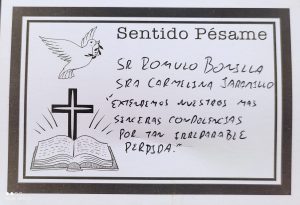 Sentido Pésame
SR ROMULO BONILLA
SRA CARMELINA JARAMILLO
"EXTENDEMOS NUESTROS MAS
SINCERAS CONDOLENCIAS
POR TAN IRREPARABLE
PERDIDA."